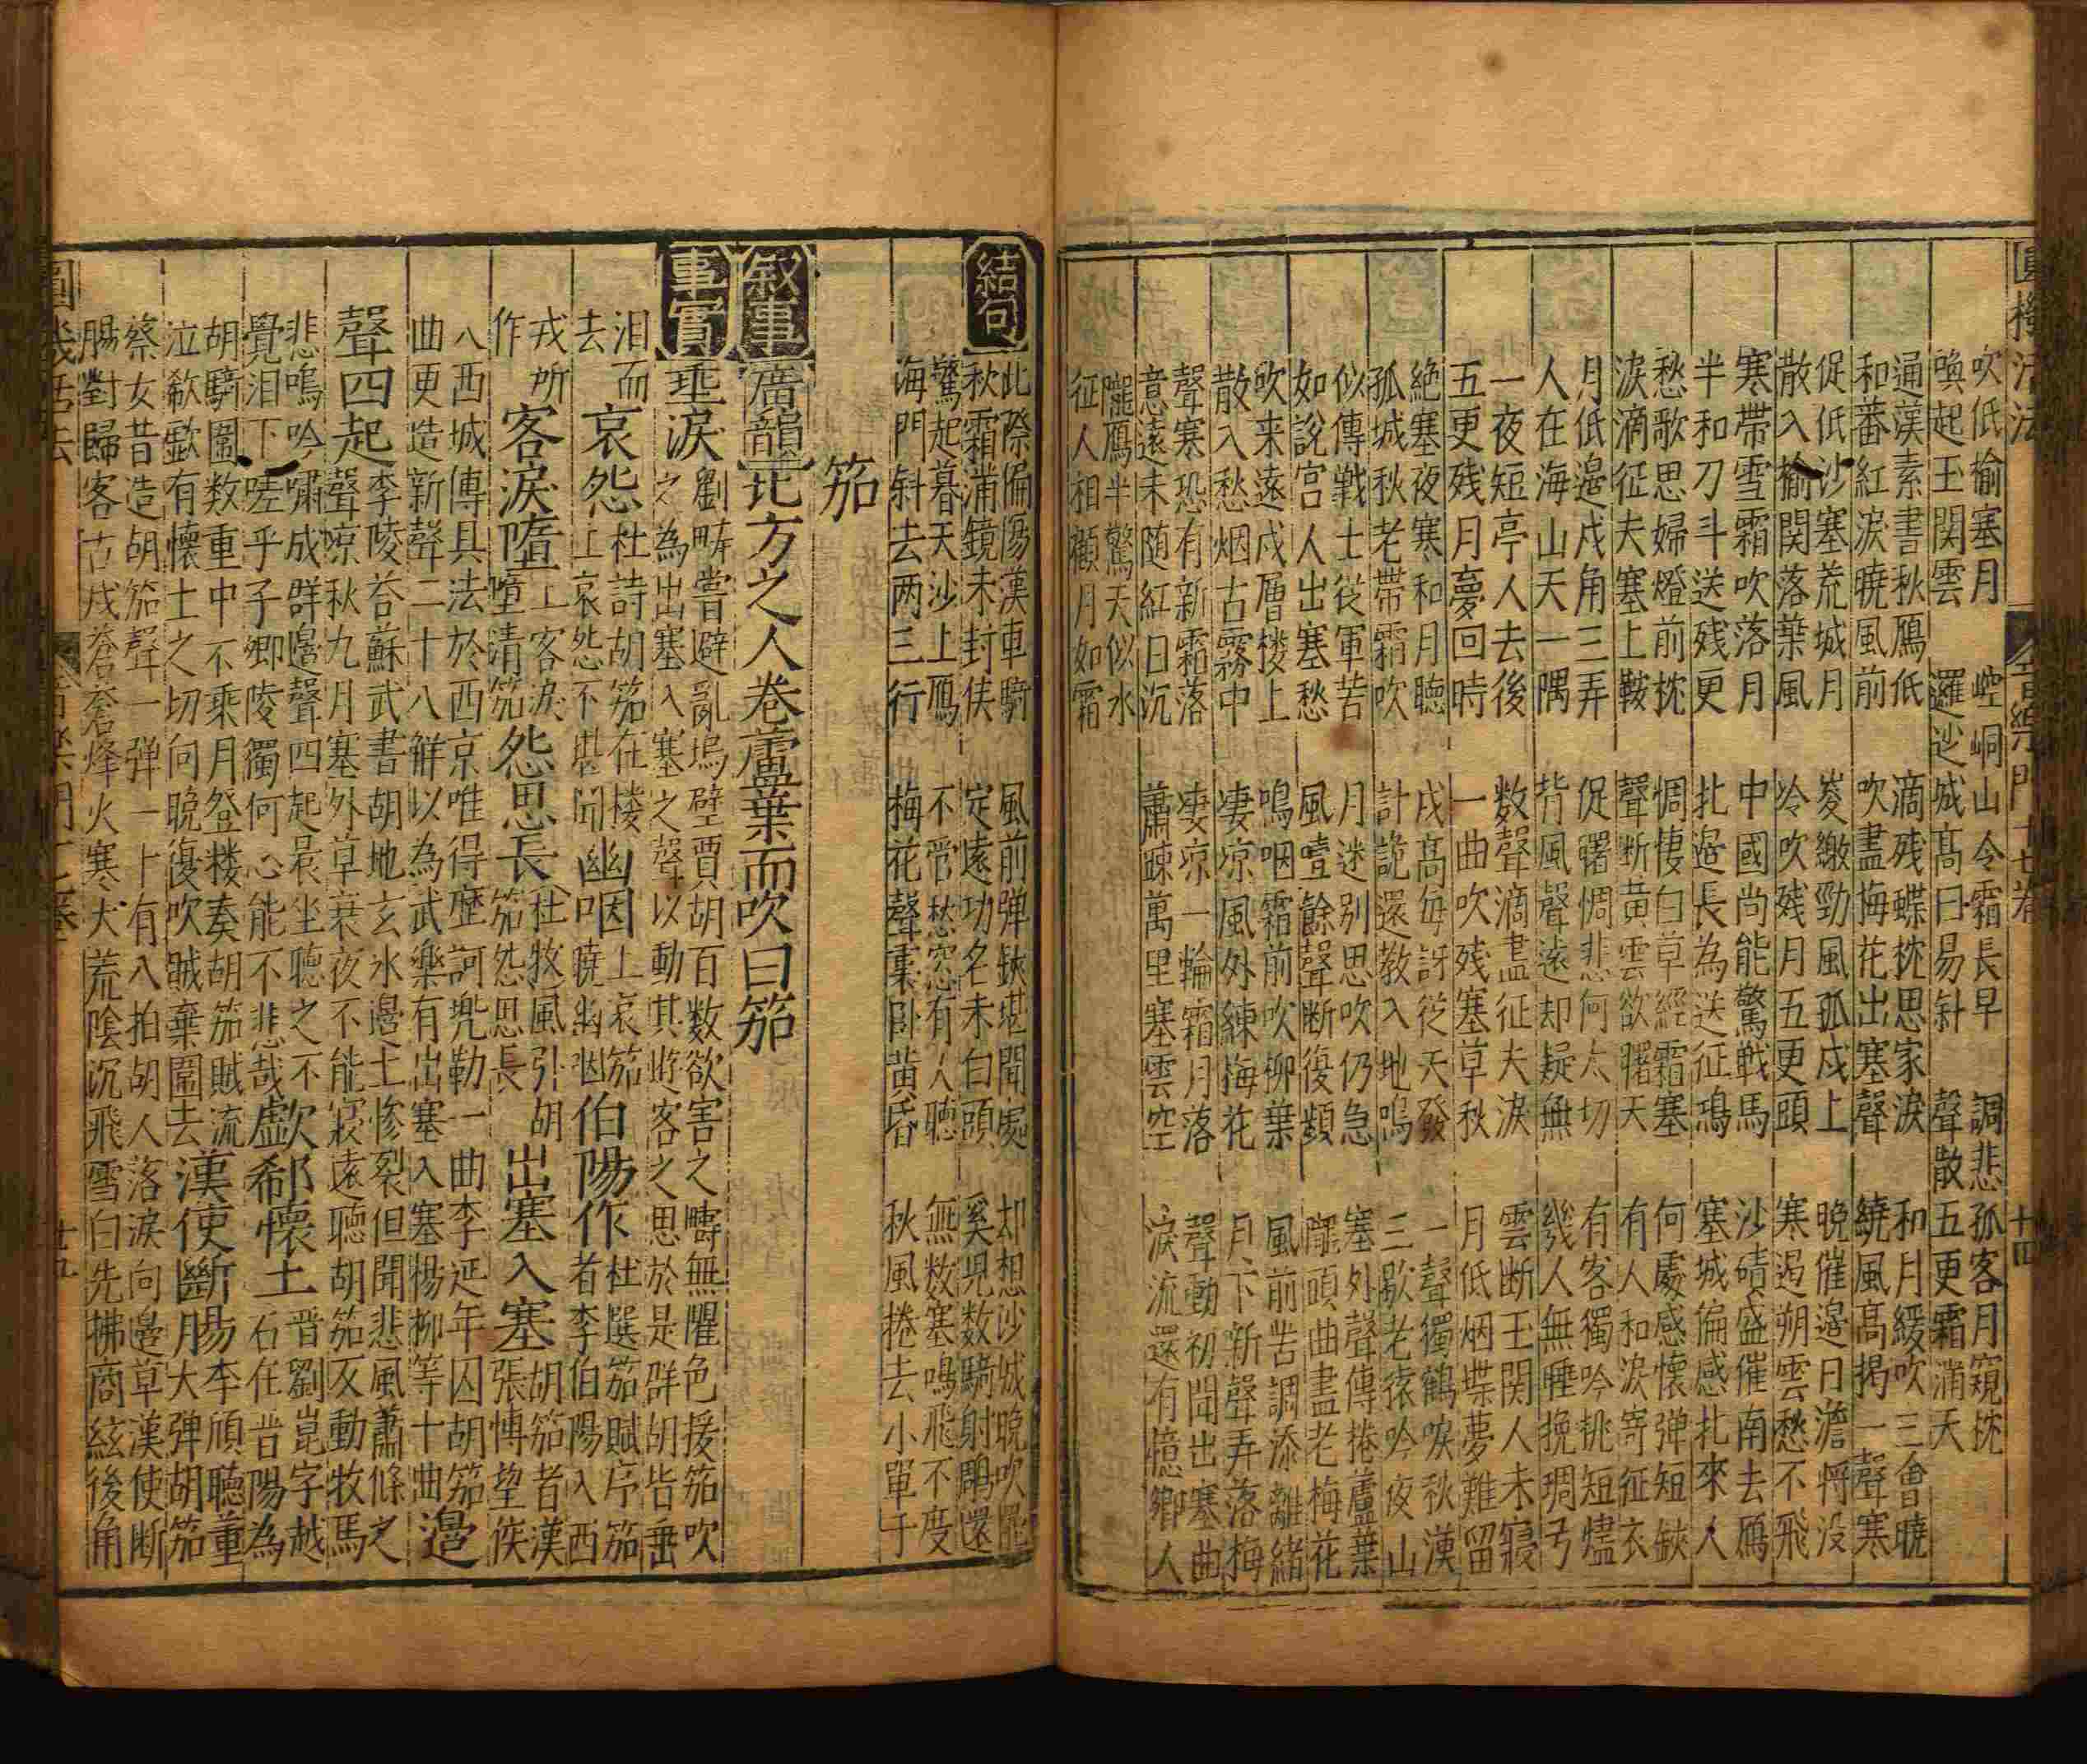 圓機活法 音樂門 十七卷 十四
吹低榆塞月 崆峒山令霜長早 調悲孤客月窺枕
喚起玉関雲 邏逤城髙日易斜 聲散五更霜滿天
通漢素書秋鴈低 滴残蝶枕思家淚 和月緩吹三會曉
和蕃紅淚曉風前 吹盡梅花出塞聲 繞風髙揭一聲寒
促低沙塞荒城月 岌繳勁風孤戍上 晩催邉日澹将没
散入榆関落葉風 冷吹残月五更頭 寒遏朔雲愁不飛
寒帶雪霜吹落月 中國尚能驚戦馬 沙磧盛催南去鴈
半和刀斗送残更 北邉長為送征鴻 塞城偏感北來人
愁歌思婦燈前枕 惆悽白草經霜塞 何處感懷弹短鋏
淚滴征夫塞上鞍 聲断黄雲欲曙天 有人和淚寄征衣
月低邉戍角三弄 促曙惆悲何太切 有客獨吟挑短燼
人在海山天一隅 背風聲遠却疑無 幾人無睡挽琱弓
一夜短亭人去後 数聲滴盡征夫淚 雲断玉関人未寢
五更残月夢回時 一曲吹残塞草秋 月低烟堞夢難留
絶塞夜寒和月聽 戍髙每訝從天發 一聲獨鶴唳秋漢
孤城秋老帶霜吹 計詭還教入地鳴 三歇老猿吟夜山
似傳戦士從軍苦 月迷别思吹仍急 塞外聲傳捲蘆葉
如說宮人出塞愁 風噎餘聲断復頻 隴頭曲盡老梅花
吹来遠戍層楼上 鳴咽霜前吹柳葉 風前苦調添離緒
散入愁烟古霧中 凄凉風外練梅花 月下新聲弄落梅
聲寒恐有新霜落 凄凉一輪霜月落 聲動初聞出塞曲
意遠未随紅日沉 蕭踈萬里塞雲空 淚流還有憶鄉人
隴鴈半驚天似水
征人相顧月如霜
結句 此際偏傷漢車騎 風前弹鋏堪聞處 却想沙城晩吹罷
秋霜满鏡未封侯 定遠功名未白頭 奚児数騎射鵰還
驚起暮天沙上鴈 不管愁窓有人聽 無数塞鴻飛不度
海門斜去两三行 梅花聲裏卧黄昏 秋風捲去小單于
笳
叙事 廣韻北方之人卷蘆葉而吹曰笳
事實 垂淚 劉疇嘗避亂塢壁賈胡百数欲害之疇無懼色援笳吹
之為出塞入塞之聲以動其遊客之思於是群胡皆垂
泪而去 哀怨 杜詩胡笳在楼上哀怨不堪聞 幽咽 上哀笳曉幽咽 伯陽作 杜選笳賦序笳者李伯陽入西
戎所作 客淚墮 上客淚墮清笳 怨思長 杜牧風引胡笳怨思長 出塞入塞 胡笳者漢張愽望侯
入西城傳其法於西京唯得歴訶兜勒一曲李延年因胡笳
曲更造新聲二十八觧以為武樂有出塞入塞楊柳等十曲 邉
聲四起 李陵荅蘇武書胡地玄氷邉土惨裂但聞悲風蕭條之
聲凉秋九月塞外草衰夜不能寐遠聽胡笳互動牧馬
悲鳴吟嘯成群邉聲四起晨坐聽之不
覺泪下嗟乎子卿陵獨何心能不悲哉 歔欷懷土 晋劉崑字越石在晋陽為
胡騎圍数重中不乘月登楼奏胡笳賊流
泣欷歔有懷土之切向晩復吹賊棄圍去 漢使斷腸 李頎聽董大弹胡笳
蔡女昔造胡笳聲一弹一十有八拍胡人落淚向邉草漢使断
腸對歸客古戍蒼蒼烽火寒大荒陰沉飛雪白先拂商絃後角
圓機活法 音樂門十七卷 十五